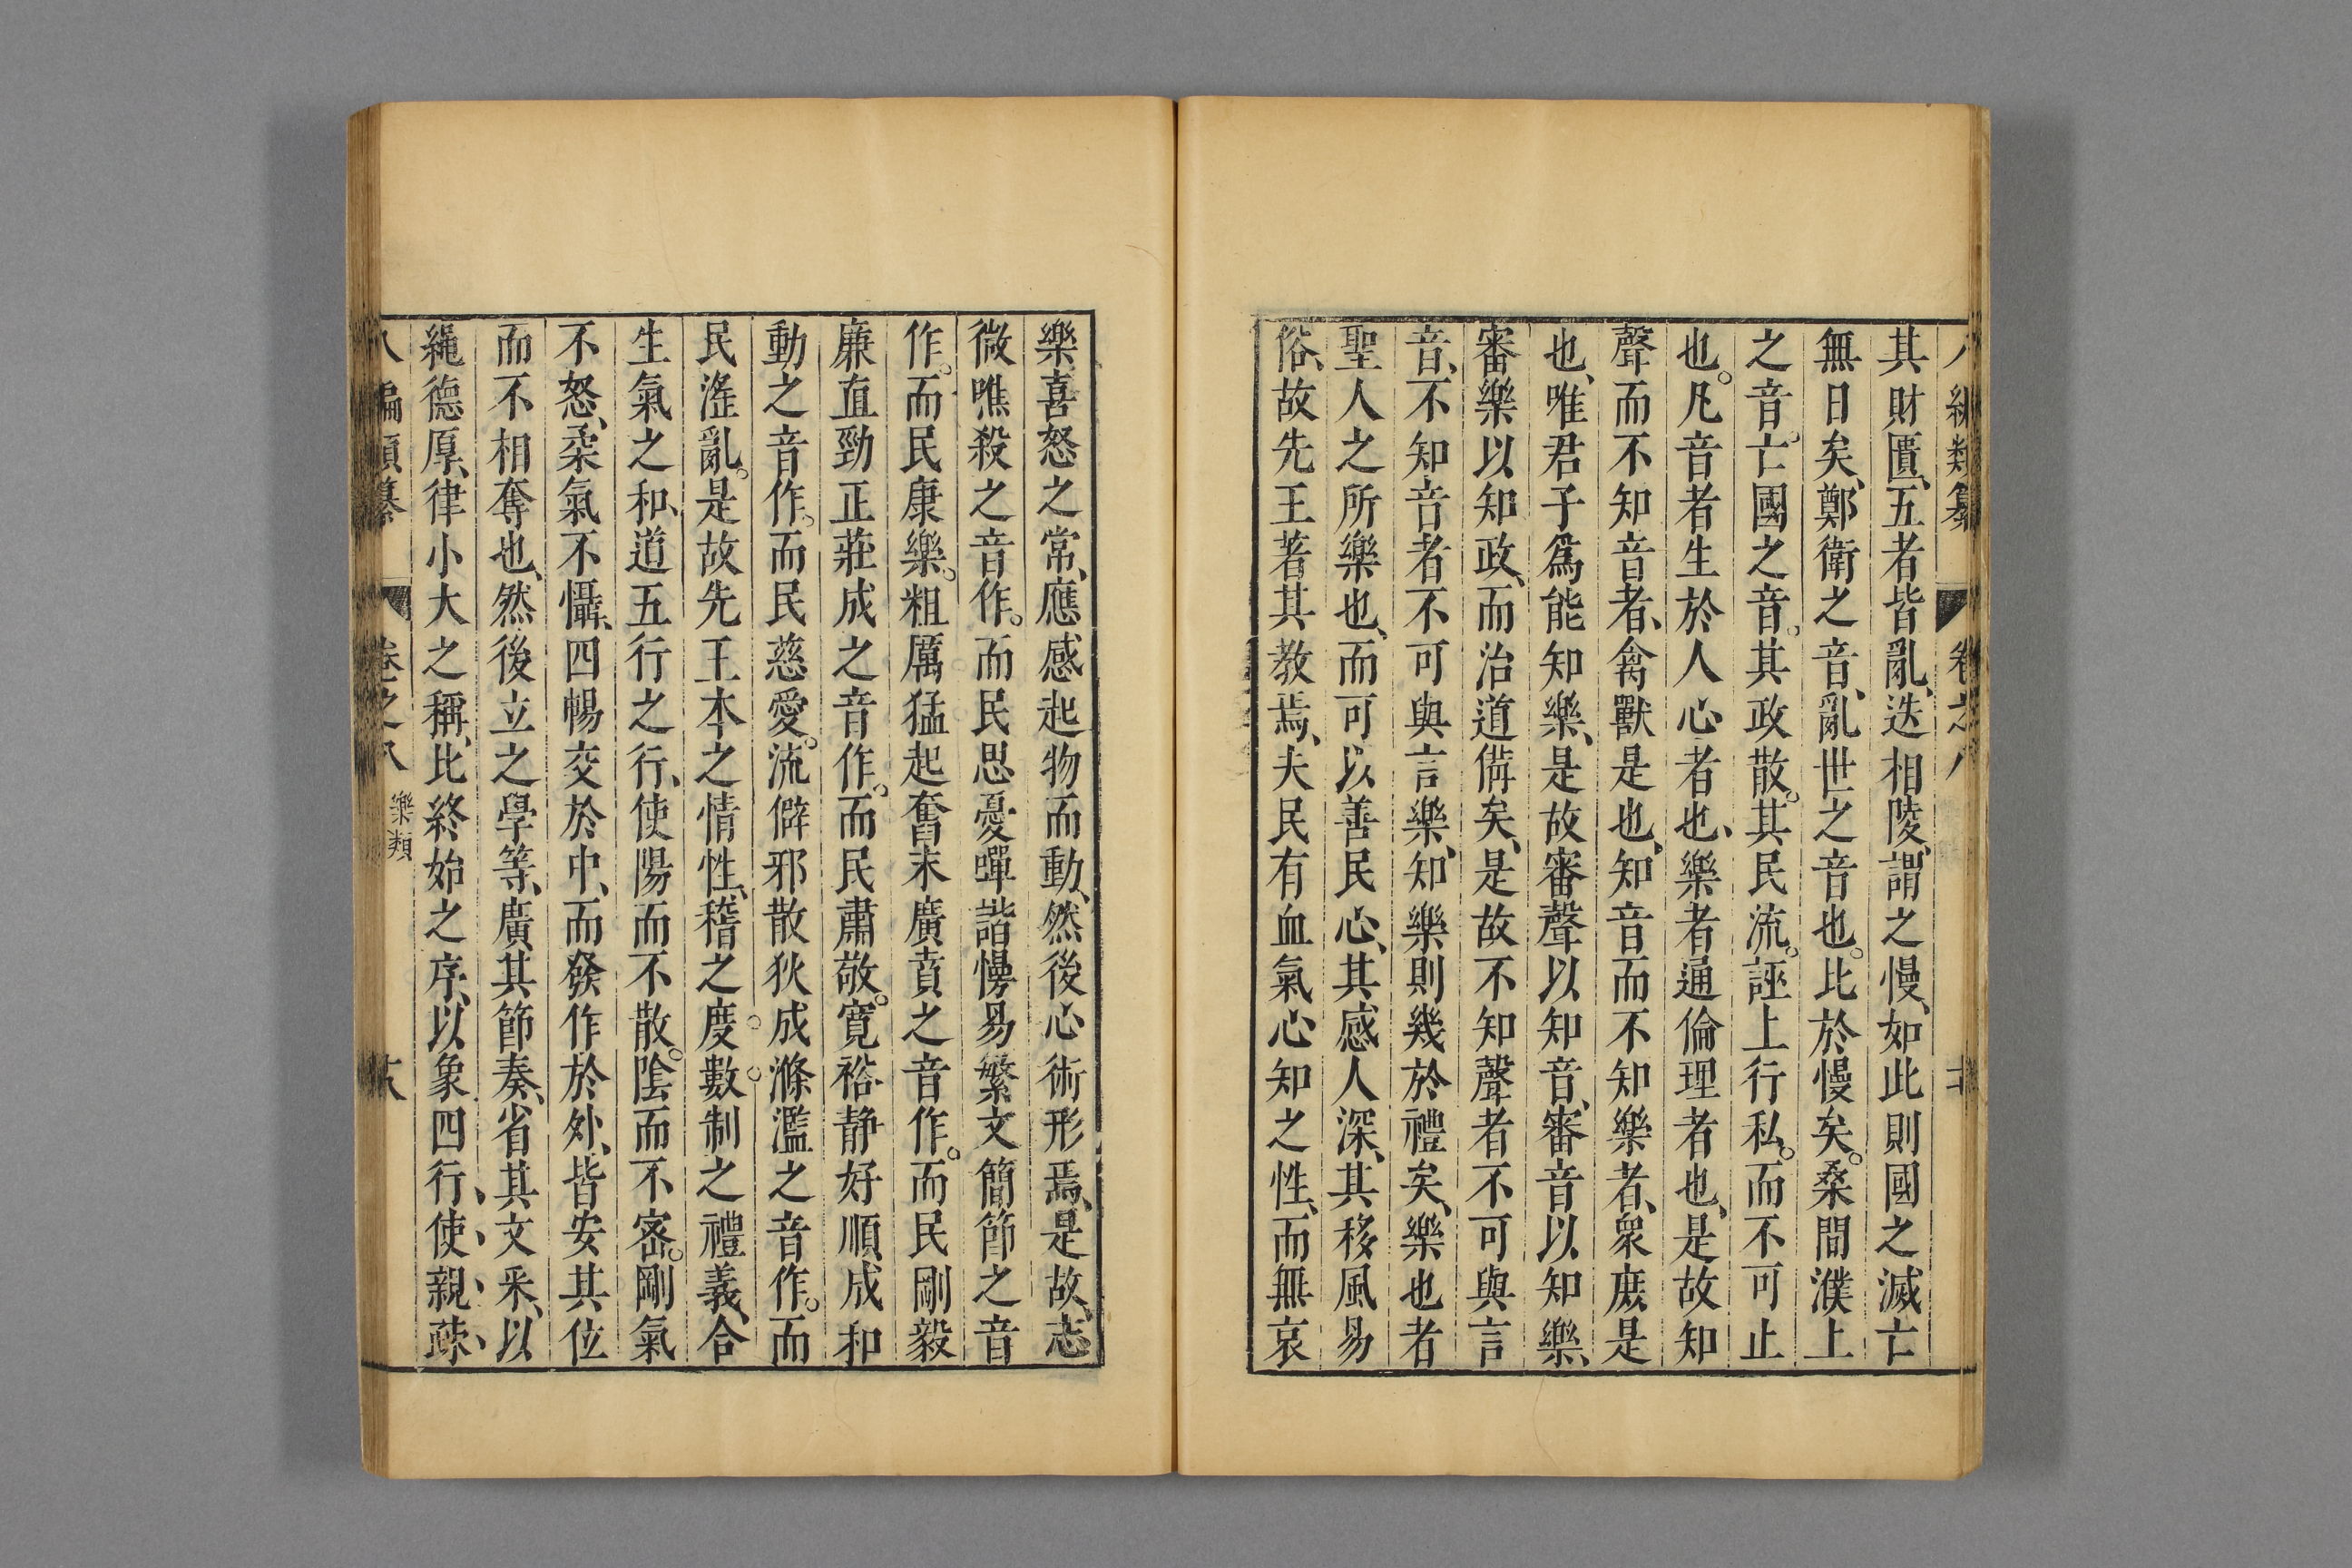 其財匱、五者皆亂、迭相陵、謂之慢、如此則國之滅亡
無日矣、鄭衛之音、亂世之音也。比於慢矣。桑間濮上
之音。亡國之音。其政散。其民流。誣上行私。而不可止
也。凡音者生於人心者也、樂者通倫理者也、是故知
聲而不知音者、禽獸是也、知音而不知樂者、衆庶是
也、唯君子爲能知樂、是故審聲以知音、審音以知樂、
審樂以知政、而治道備矣、是故不知聲者不可與言
音、不知音者不可與言樂、知樂則幾於禮矣、樂也者
聖人之所樂也、而可以善民心、其感人深、其移風易
俗、故先王著其教焉、夫民有血氣心知之性、而無哀
樂喜怒之常、應感起物而動、然後心術形焉、是故、志
微噍殺之音作。而民思憂嘽諧慢易繁文簡節之音
作。而民康樂。粗厲猛起奮末廣賁之音作。而民剛毅
廉直勁正莊成之音作。而民肅敬。寬裕静好順成和
動之音作。而民慈愛。流僻邪散狄成滌濫之音作。而
民滛亂。是故先王本之情性、稽之度數。制之禮義、合
生氣之和、道五行之行、使陽而不散。陰而不密。剛氣
不怒、柔氣不懾、四暢交於中、而發作於外、皆安其位
而不相奪也、然後立之學等、廣其節奏、省其文采、以
繩德厚、律小大之稱、比終始之序、以象四行、使、親、疎、
八編類纂 卷之八 樂類 十八